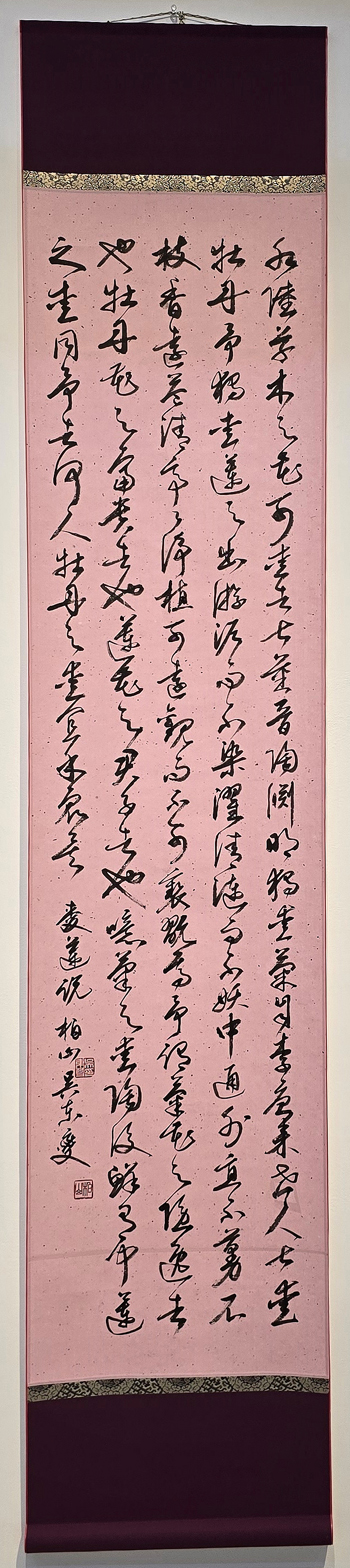 水陸草木之花可愛者甚蕃晉陶淵明獨愛菊自李唐來世人甚愛
牡丹予獨愛蓮之出淤泥而不染濯清漣而不妖中通外直不蔓不
枝香遠益清亭亭淨植可遠觀而不可褻翫焉予謂菊花之隱逸者
也牡丹花之富貴者也蓮花之君子者也噫菊之愛陶後鮮有聞蓮
之愛同予者何人牡丹之愛宜乎衆矣 愛蓮說 柏山 吳東燮